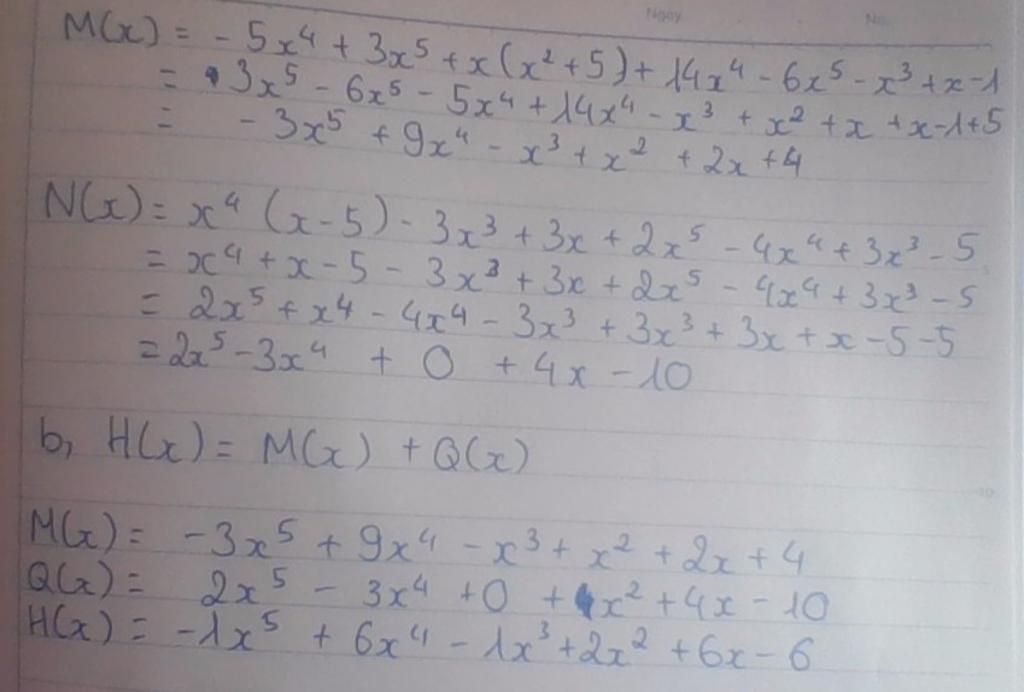 Ngày No.
M(x) = - 5x⁴ + 3x⁵ + x(x² + 5) + 14x⁴ - 6x⁵ - x³ + x - 1
= 3x⁵ - 6x⁵ - 5x⁴ + 14x⁴ - x³ + x² + x + x - 1 + 5
= - 3x⁵ + 9x⁴ - x³ + x² + 2x + 4
N(x) = x⁴ (x - 5) - 3x³ + 3x + 2x⁵ - 4x⁴ + 3x³ - 5
= x⁴ + x - 5 - 3x³ + 3x + 2x⁵ - 4x⁴ + 3x³ - 5
= 2x⁵ + x⁴ - 4x⁴ - 3x³ + 3x³ + 3x + x - 5 - 5
= 2x⁵ - 3x⁴ + 0 + 4x - 10
b, H(x) = M(x) + Q(x)
M(x) = - 3x⁵ + 9x⁴ - x³ + x² + 2x + 4
Q(x) = 2x⁵ - 3x⁴ + 0 + 1x² + 4x - 10
H(x) = - 1x⁵ + 6x⁴ - 1x³ + 2x² + 6x - 6